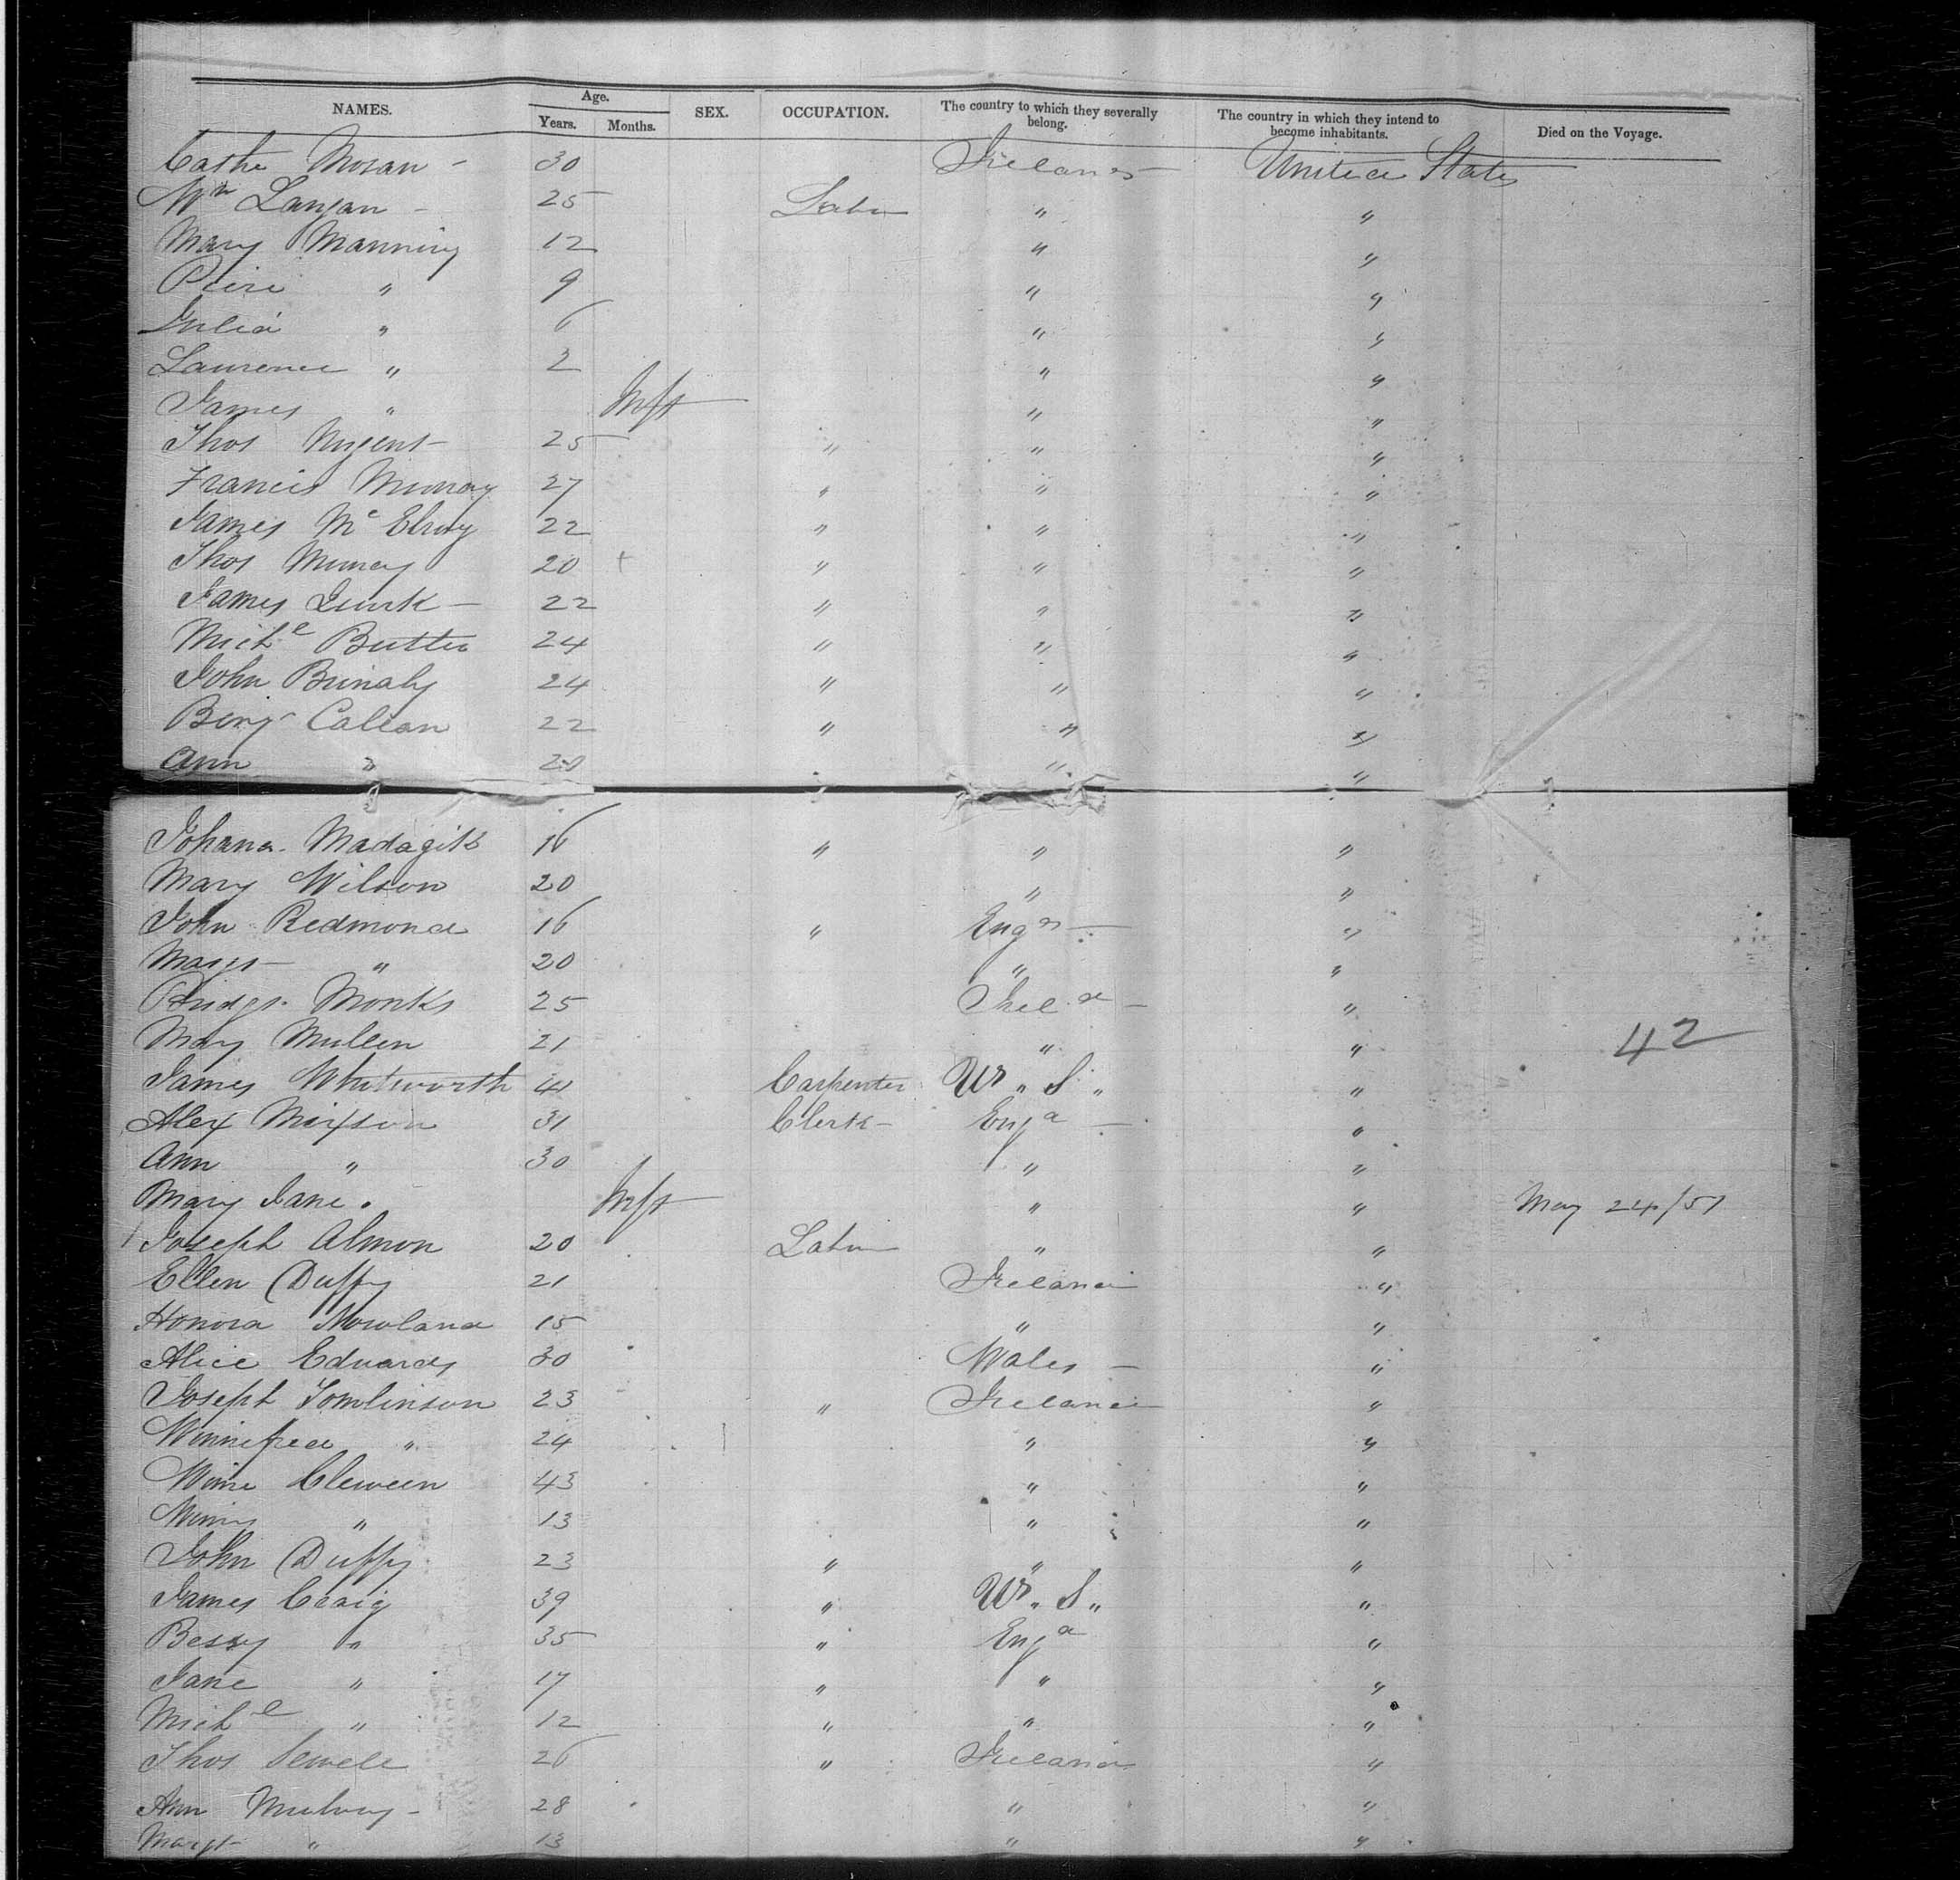 NAMES. Age. SEX. OCCUPATION. The country to which they severally belong. The country in which they intend to become inhabitants. Died on the Voyage.
Years. Months.
Cathe Moran - 30 Ireland United States
Wm Langan - 25 Labr " "
Mary Manning 12 " "
" 9 " "
Julia " 6 " "
Laurence " 2 " "
James " Inft " "
Thos Nugent 25 " " "
Francis Murray 27 " " "
James McElroy 22 " " "
Thos Murray 20 + " " "
James Quirk - 22 " " "
Michl Butler 24 " " "
John 24 " " "
Benj Callan 22 " " "
Ann " 20 " "
Johana 16 " " "
Mary Wilson 20 " "
John Redmond 16 " Engd "
Margt " 20 " "
Bridgt Monks 25 Ireld "
Mary Mullen 21 " " 42
James Whitworth 41 Carpenter U " S " "
Alex Mixson 31 Clerk Engd "
Ann " 30 " "
Mary Jane " Inft " " May 24/51
Joseph Almon 20 Labr " "
Ellen Duffy 21 Ireland "
Honora Nowland 15 " "
Alice Edwards 30 Wales "
Joseph Tomlinson 23 " Ireland "
Winnifred " 24 " "
Winne 43 " "
Winny " 13 " "
John Duffy 23 " " "
James Craig 39 " U " S " "
Bessy " 35 " Engd "
Jane " 17 " " "
Michl " 12 " " "
Thos Sewell 26 " Ireland "
Ann Mulvey - 28 " "
Margt " 13 " "